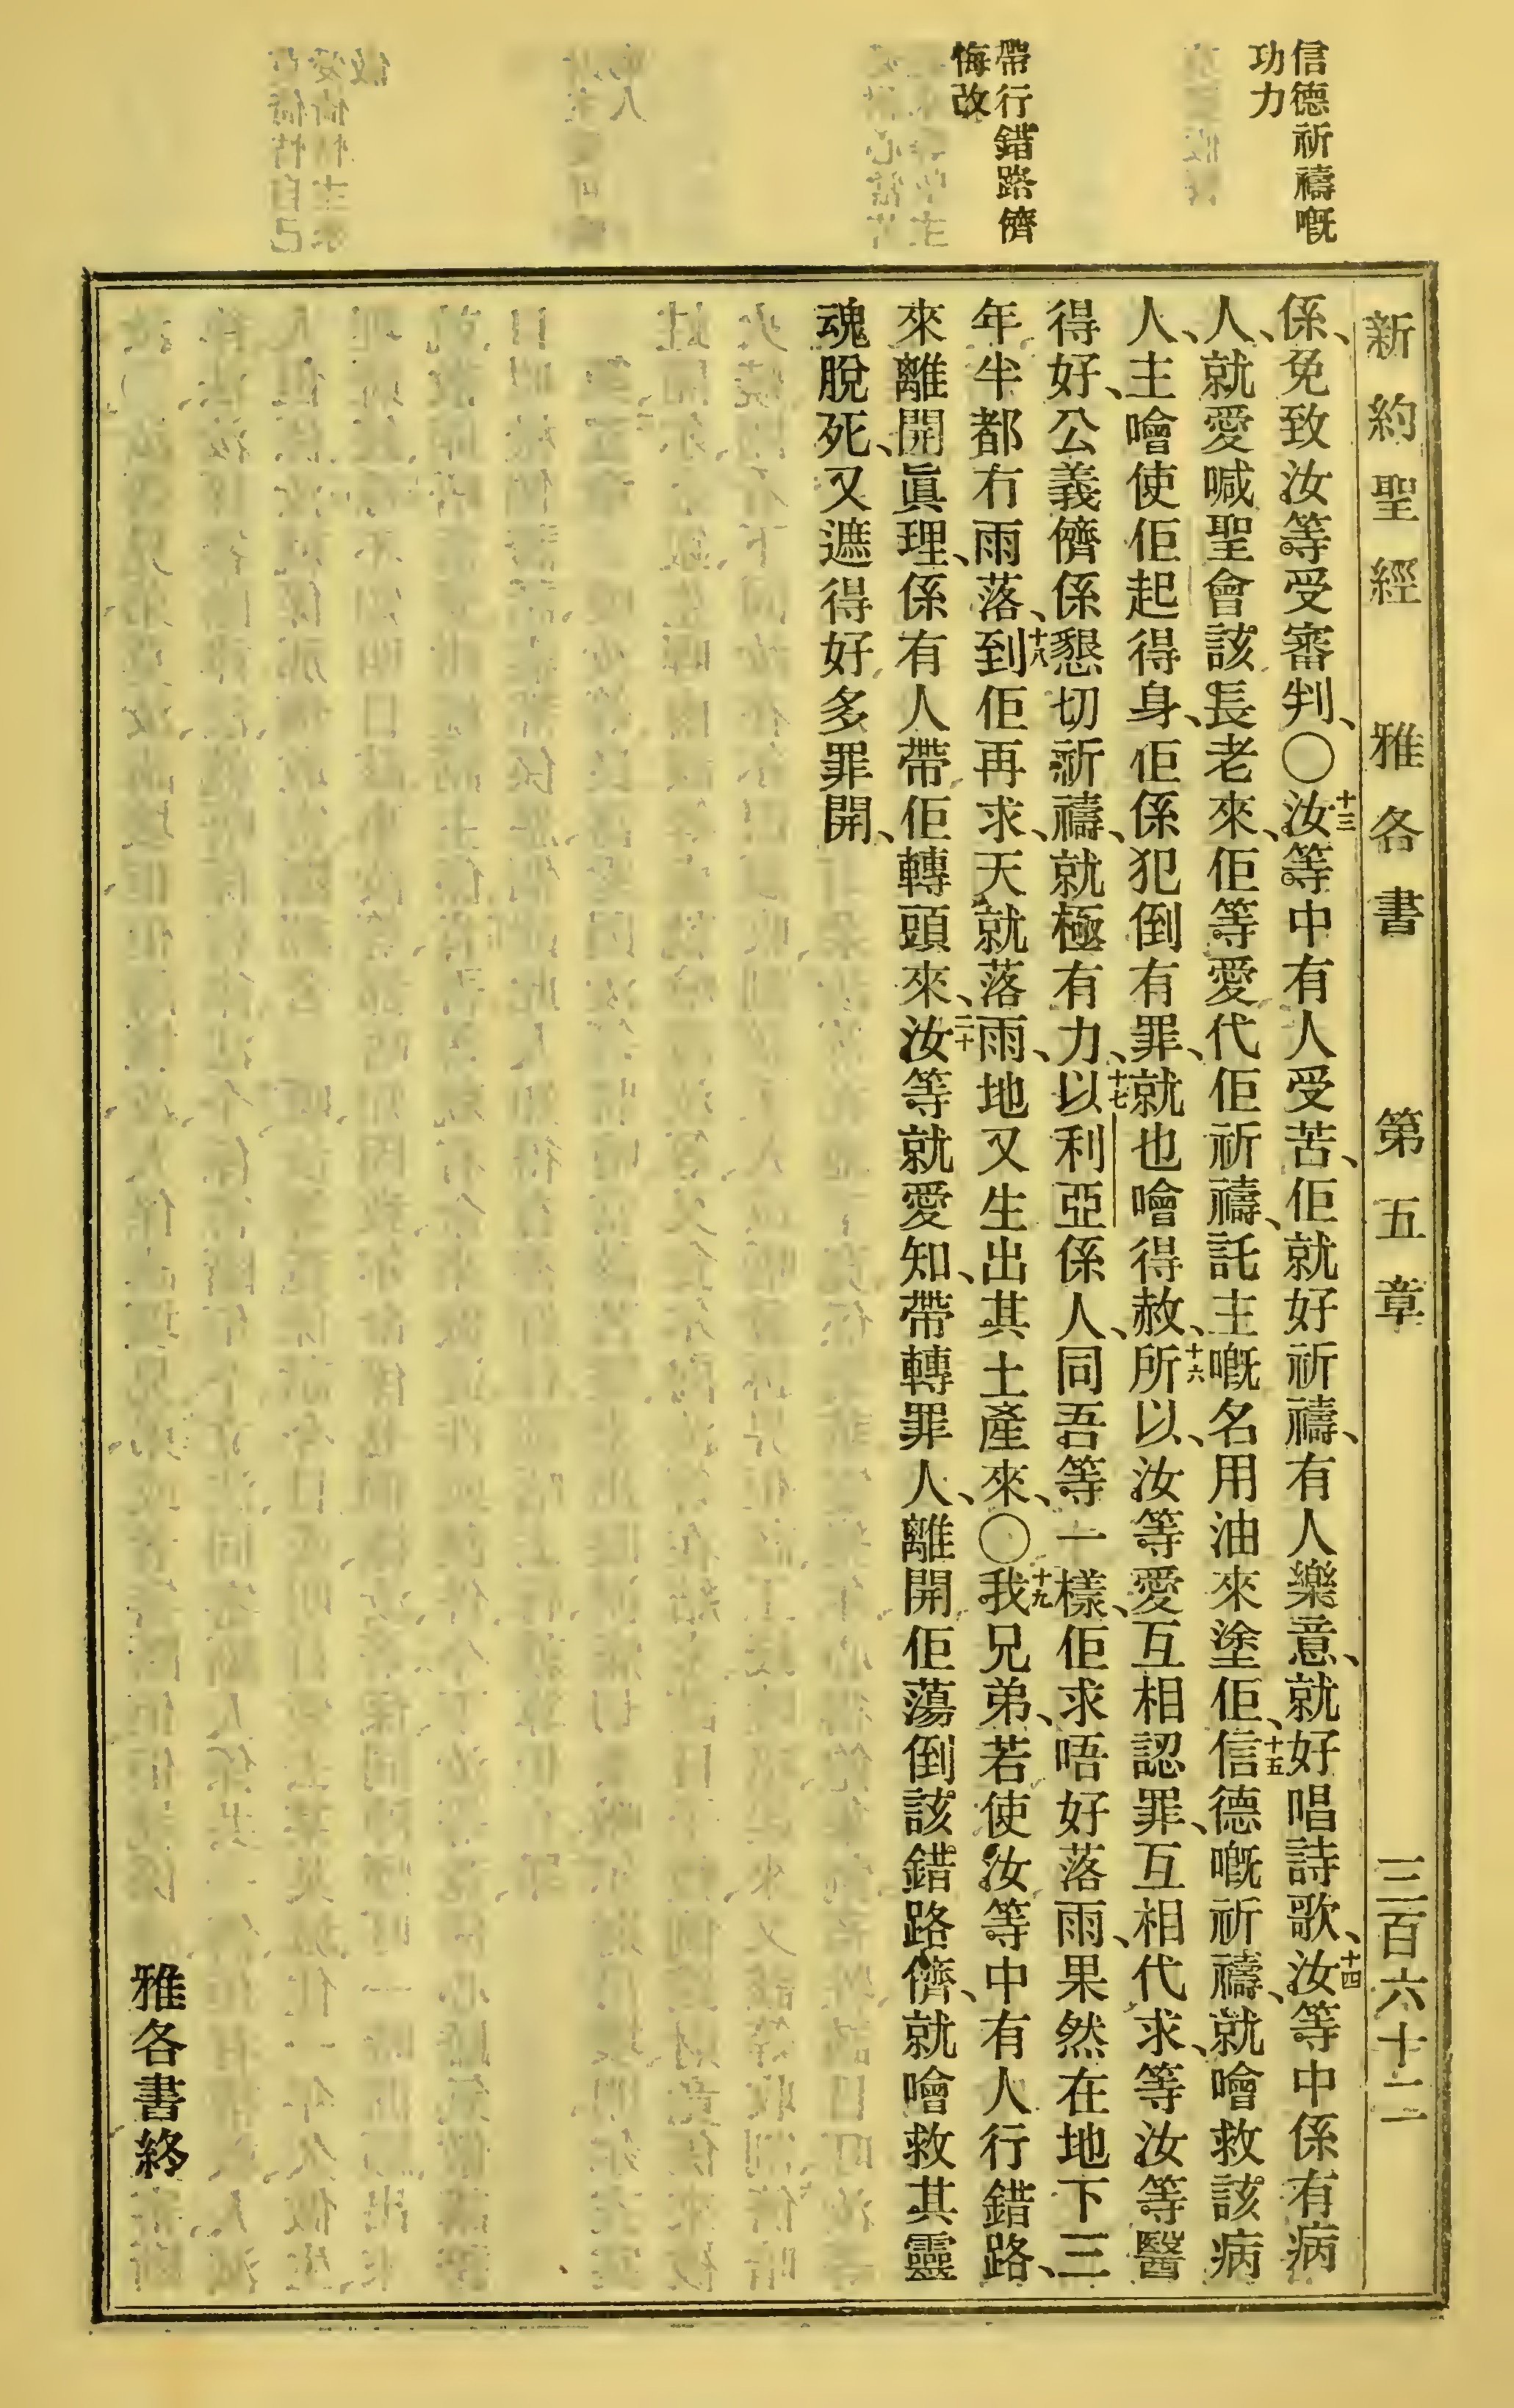 信德祈禱嘅
功力
帶行錯路儕
悔改
新約聖經 雅各書 第五章 三百六十二
係、免致汝等受審判、〇十三汝等中有人受苦、佢就好祈禱、有人樂意、就好唱詩歌、十四汝等中係有病
人、就愛喊聖會該長老來、佢等愛代佢祈禱、託主嘅名用油來塗佢、十五信德嘅祈禱、就噲救該病
人、主噲使佢起得身、佢係犯倒有罪、就也噲得赦、十六所以、汝等愛互相認罪、互相代求、等汝等醫
得好、公義儕係懇切祈禱、就極有力、十七以利亞係人、同吾等一樣、佢求唔好落雨、果然在地下三
年半都冇雨落、十八到佢再求、天就落雨、地又生出其土產來、〇十九我兄弟、若使汝等中有人行錯路、
來離開眞理、係有人帶佢轉頭來、二十汝等就愛知、帶轉罪人、離開佢蕩倒該錯路儕、就噲救其靈
魂脫死、又遮得好多罪開、
雅各書終